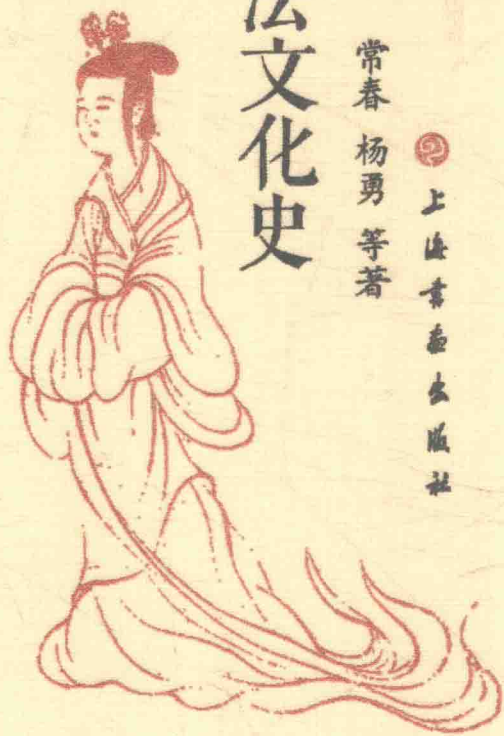 法文化史
常春 杨勇 等著
上海書画出版社